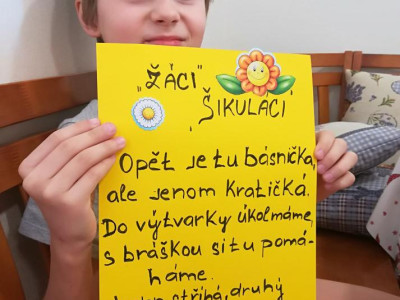 „ŽÁCI"
„ŠIKULÁCI"
Opět je tu básnička,
ale jenom kratičká.
Do výtvarky úkol máme,
s bráškou si tu pomá-
háme.
stříhá, druhý